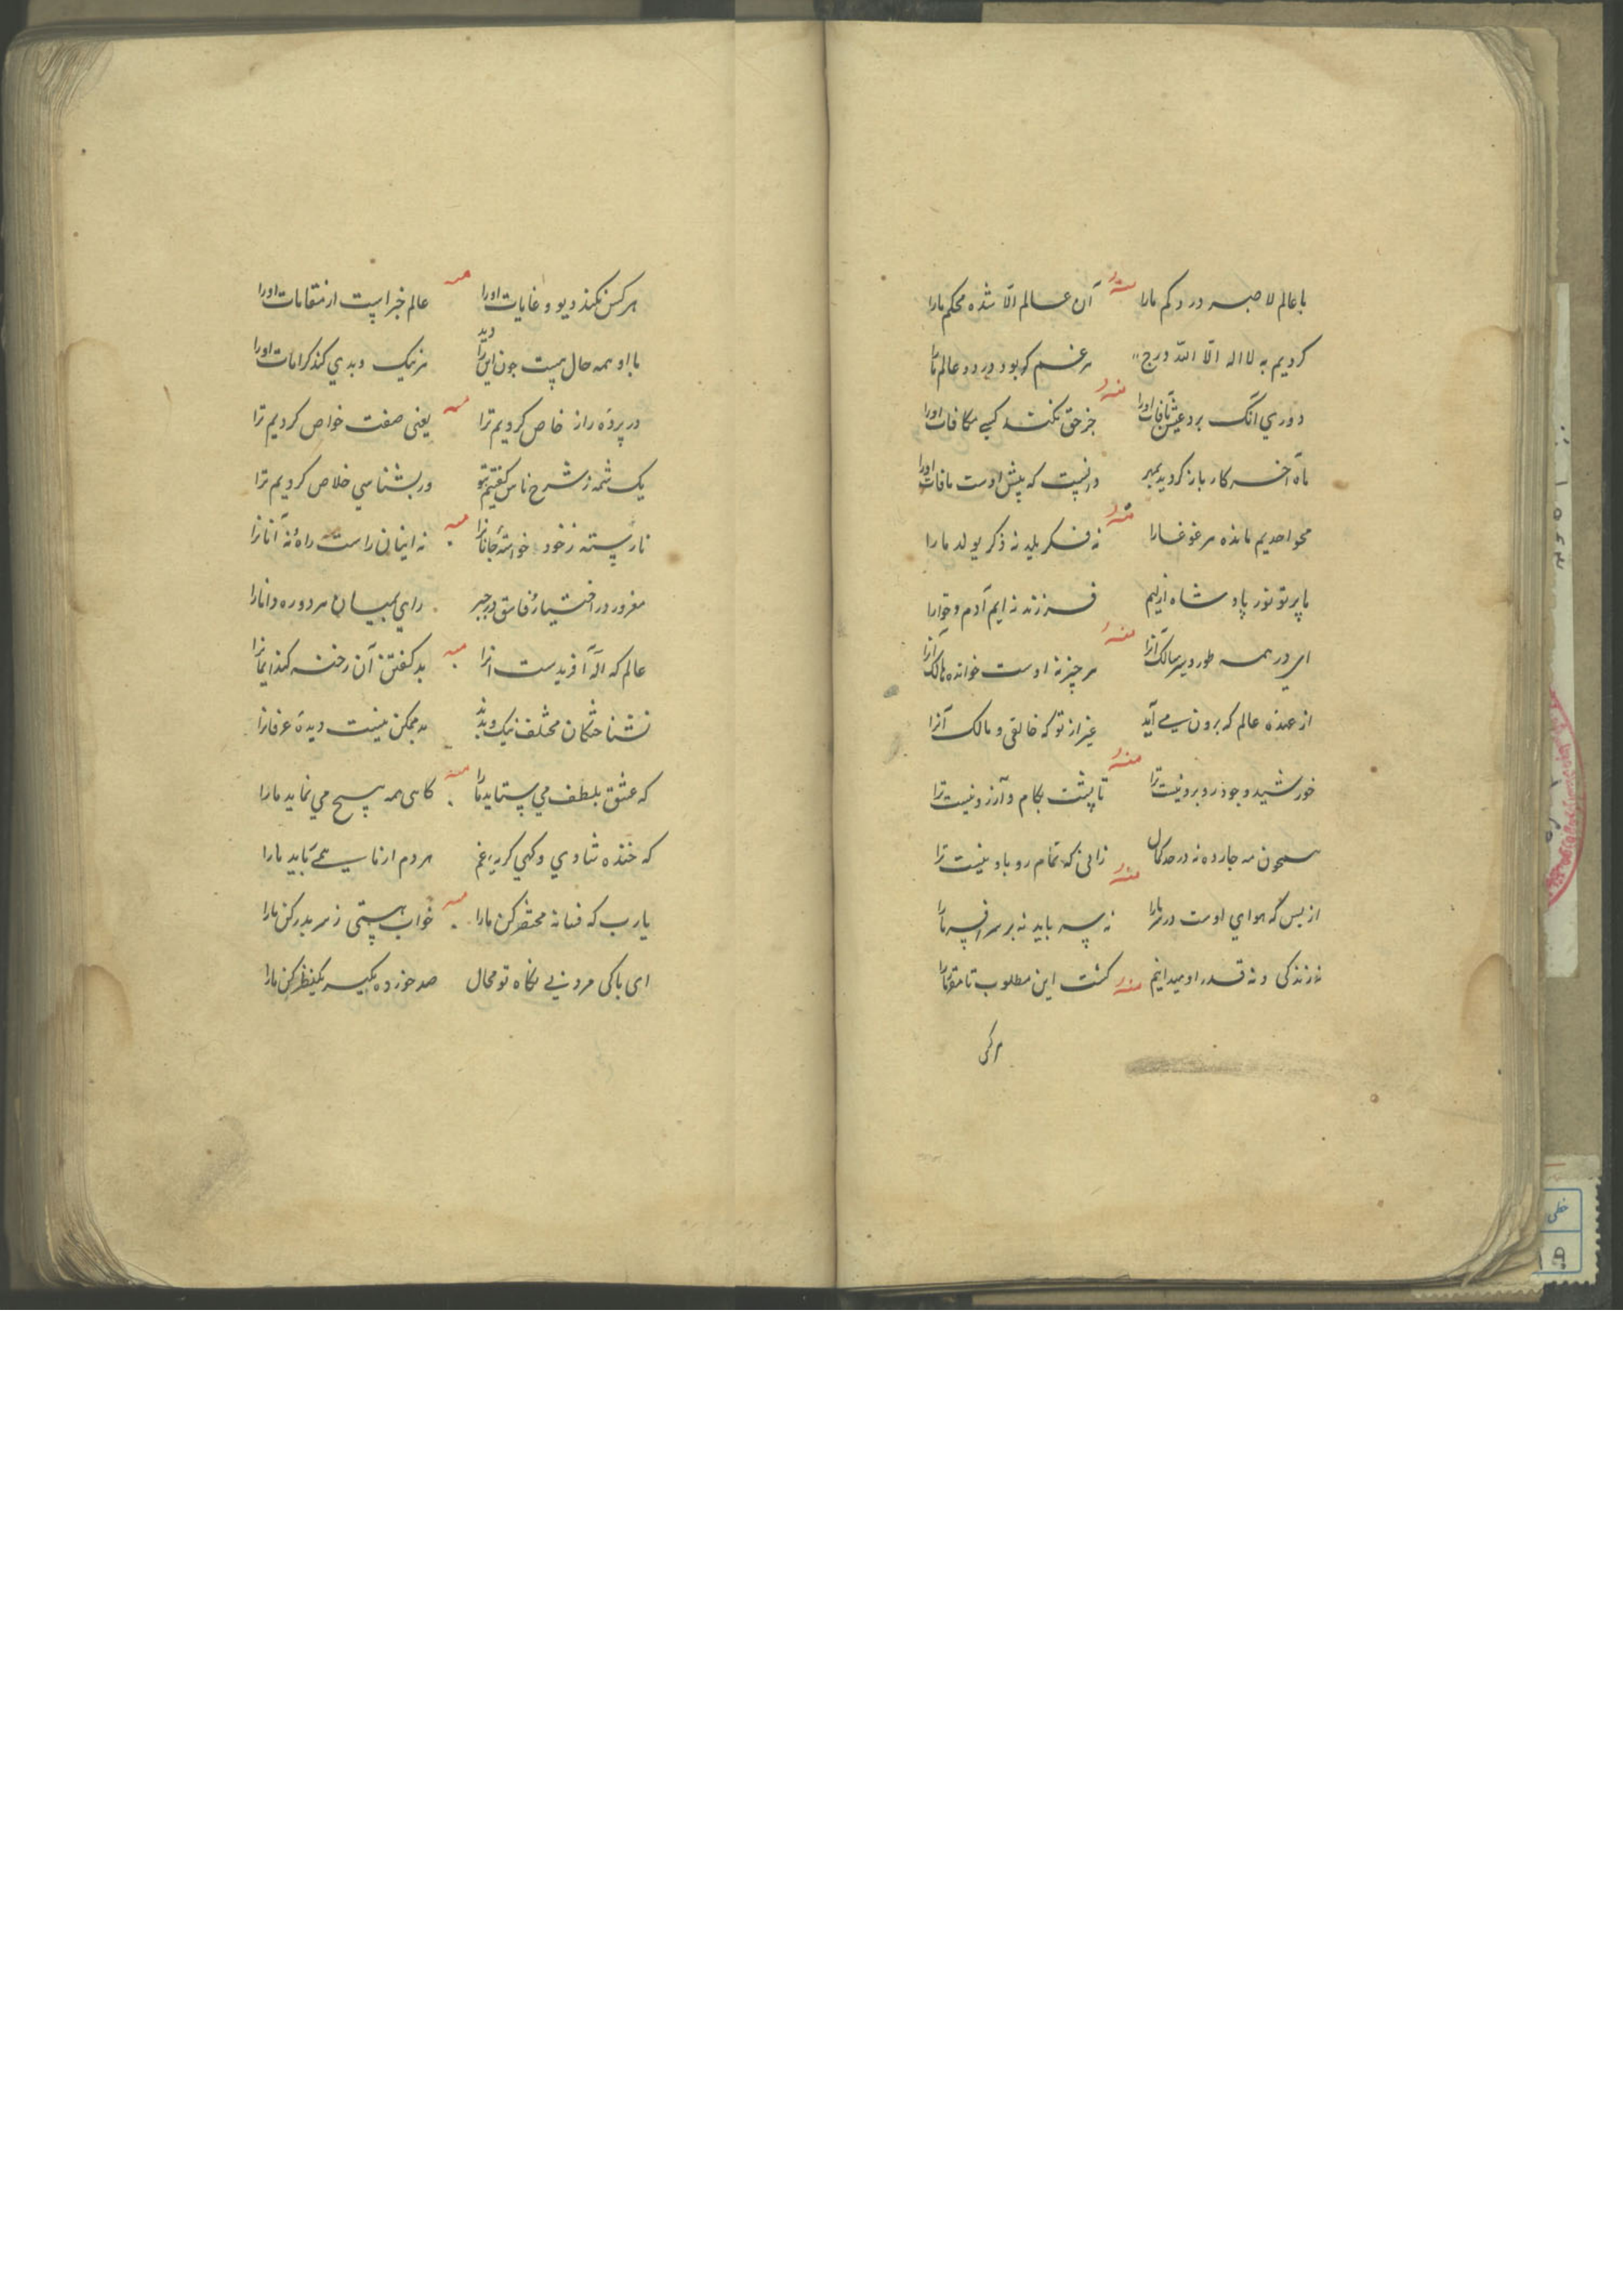 با عالم لا صبه در دکم مارا منه آن عالم الا شده محکم مارا
کردیم به لا اله الا الله درج هر غم که بود در دو عالم مارا
منه
دوری آنک برد عیش آفات اورا جز حق نکند کسی مکافات اورا
ماه آخر کار باز گردید بمهر در نیست که پیش اوست مافات اورا
منه
محو احدیم مانده هر غوغا را نه فکر یلید نه ذکر یولد ما را
ما پرتو نور پادشاه ازلیم فرزند نه ایم آدم و حوا را
منه
ای در همه طور و سیر سالک آنرا هر چیز نه اوست خوانده هالک آنرا
از عهده عالم که برون می آید غیر از تو که خالقی و مالک آنرا
منه
خورشید وجود رو برو نیست ترا تا پشت بکام و آرزو نیست ترا
همچون مه چارده نه در حد کمال زانی که تمام رو باو نیست ترا
منه
از بس که هوای اوست در سر مارا نه سر باید نه بر سر افسر مارا
نه زندکی و نه قدر او میدانیم منه کشت این مطلوب تا مقرر مارا
هر کس
هر کس نکند دیو و غایات اورا منه عالم خبر است از مقامات اورا
با او همه حال هست چون این را دید هر نیک و بدی کند کرامات اورا
در پرده راز خاص کردیم ترا منه یعنی صفت خواص کردیم ترا
یک شمه ز شرح ناس کفتیم بتو ور بشناسی خلاص کردیم ترا
نارسته ز خود خواسته جانانرا منه نه اینانی راست راه و نه آنانرا
مغرور در اختیار و فاسق در جبر راهی بمیان هر دو ره دانا را
عالم که اله آفریدست انرا منه بد کفتن آن رخنه کند ایمانرا
نشناختکان مختلف نیک و بدند بد ممکن نیست دیده عرفانرا
که عشق بلطف می ستاید مارا منه کاهی همه هیچ می نماید مارا
که خنده شادی و کهی کریه غم هر دم از ما همی رباید مارا
یارب که فسانه مختصر کن مارا منه خواب هستی ز سر بدر کن مارا
ای پاکی مرد بی نکاه تو محال صد خورده مکیر یکنظر کن مارا
خطی